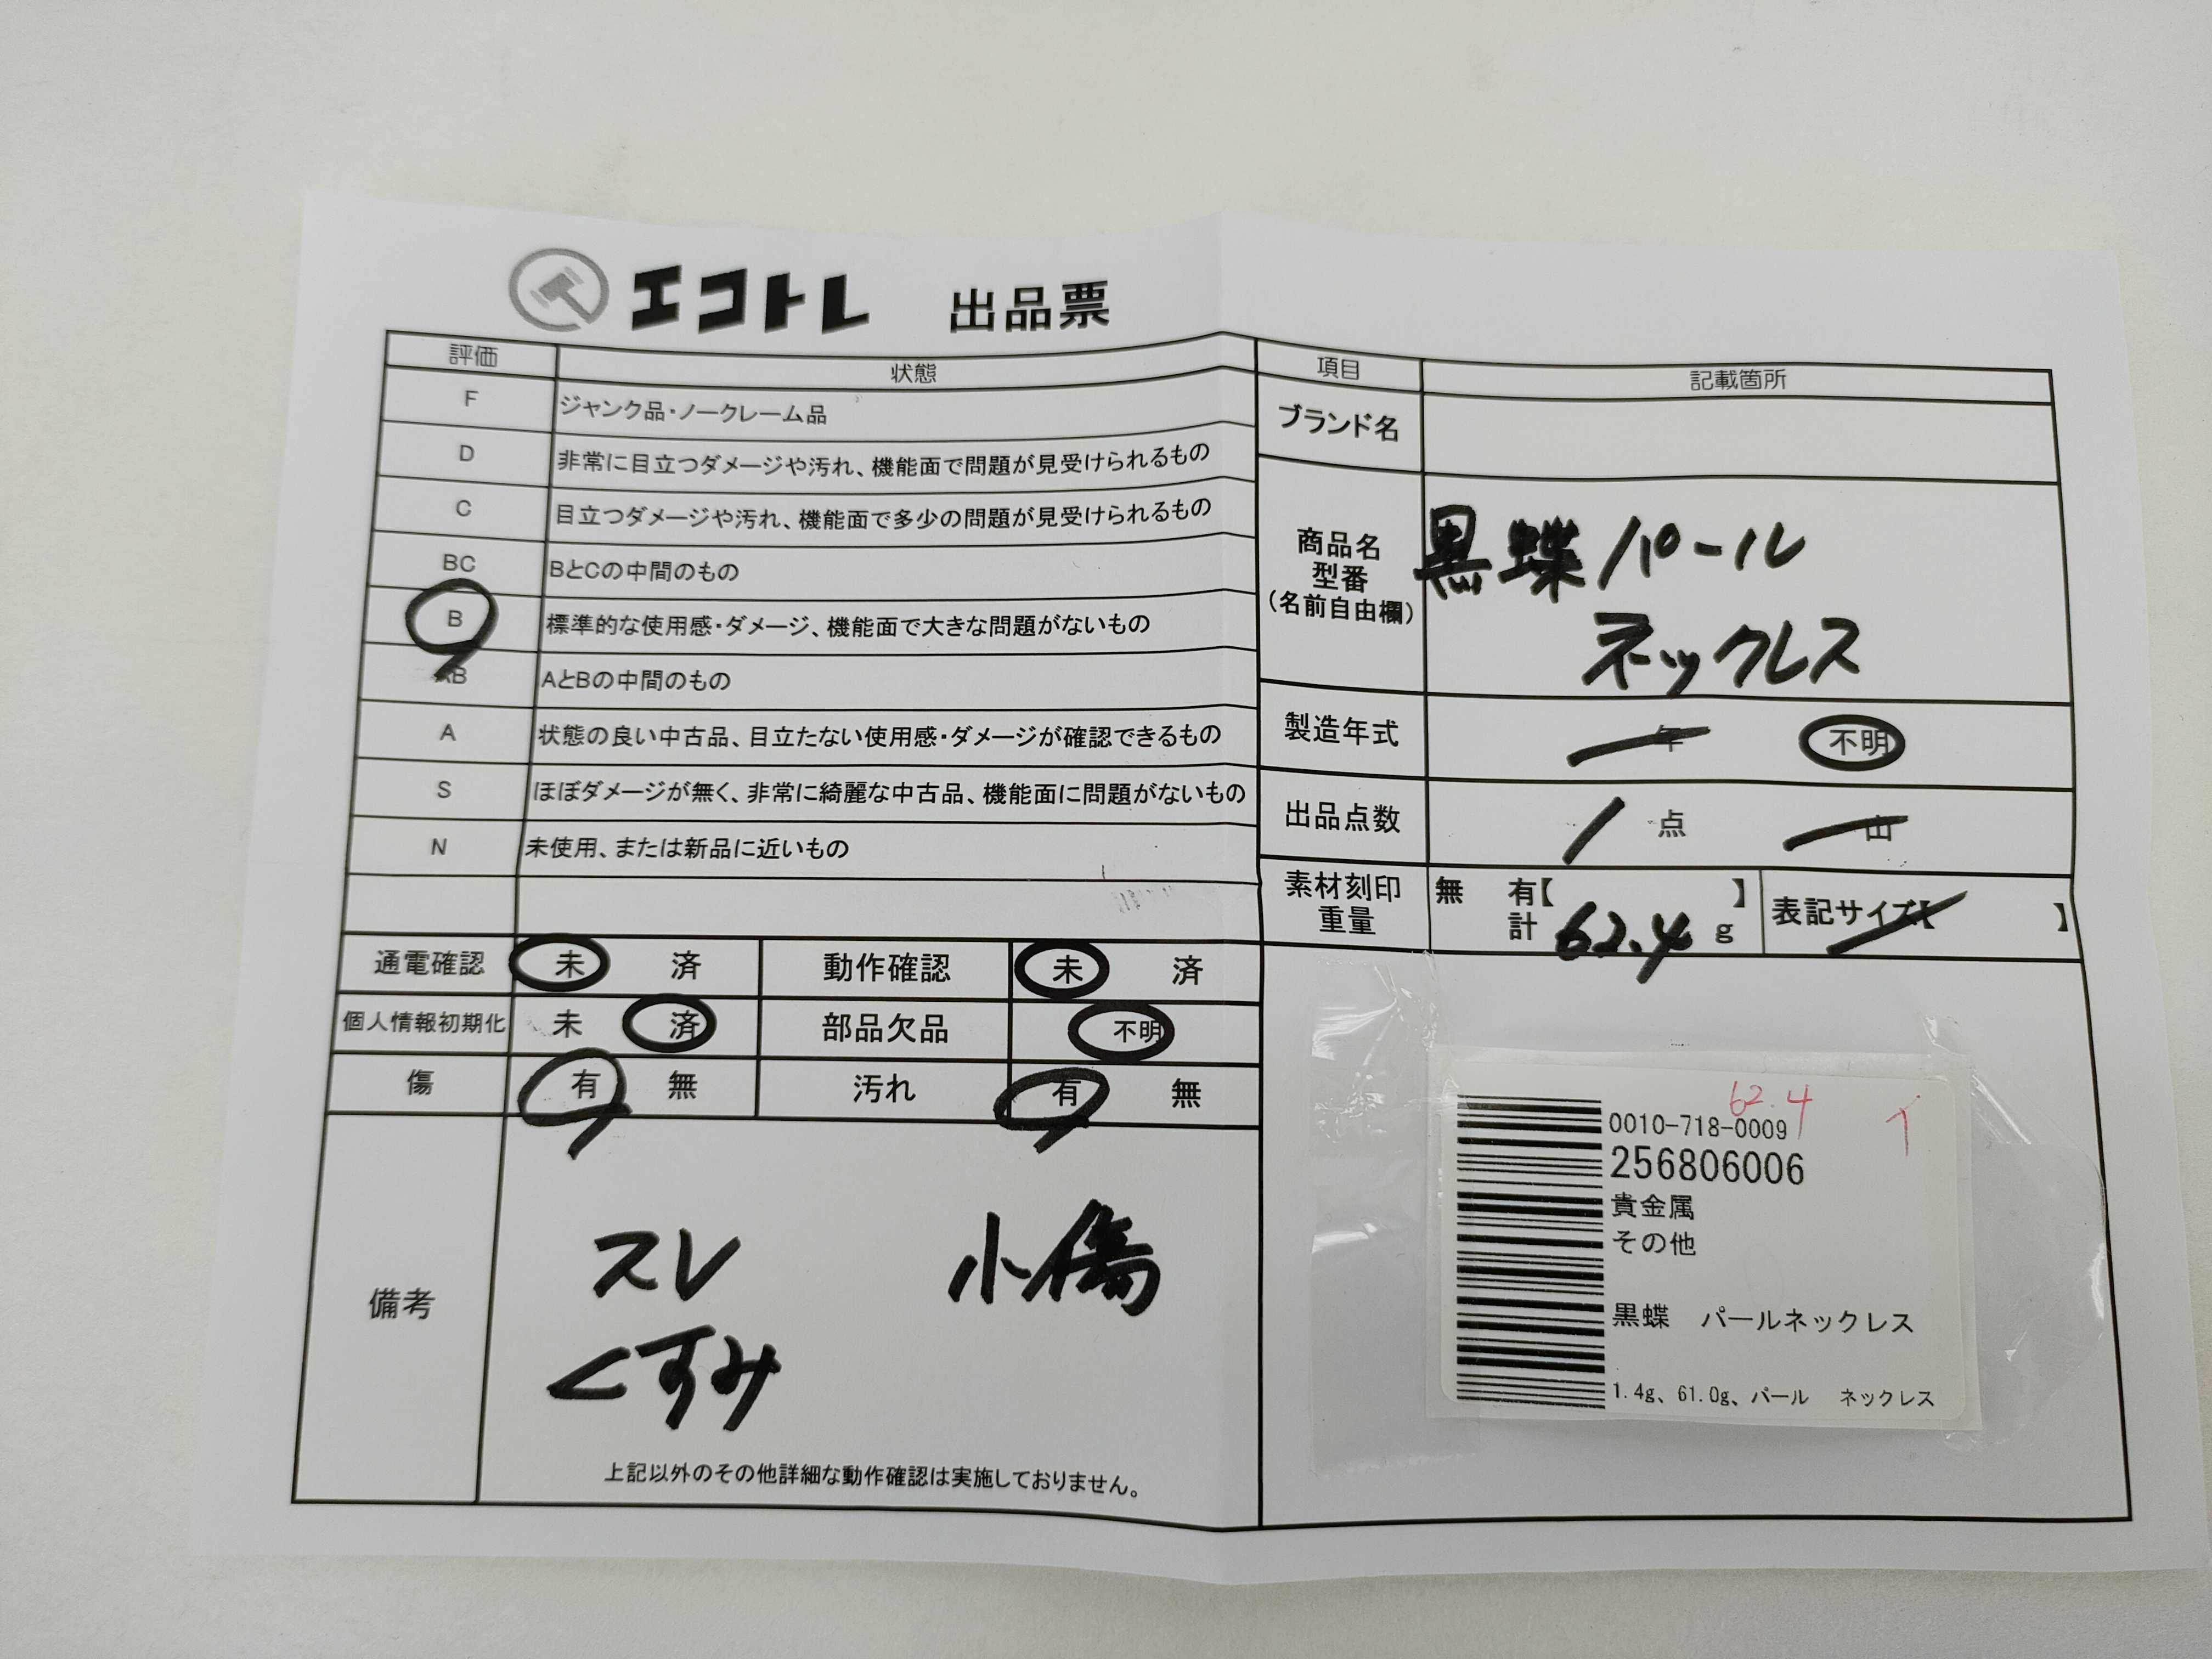 エコトレ 出品票
評価 状態
F ジャンク品・ノークレーム品
D 非常に目立つダメージや汚れ、機能面で問題が見受けられるもの
C 目立つダメージや汚れ、機能面で多少の問題が見受けられるもの
BC BとCの中間のもの
B 標準的な使用感・ダメージ、機能面で大きな問題がないもの
AB AとBの中間のもの
A 状態の良い中古品、目立たない使用感・ダメージが確認できるもの
S ほぼダメージが無く、非常に綺麗な中古品、機能面に問題がないもの
N 未使用、または新品に近いもの
通電確認 未 済 動作確認 未 済
個人情報初期化 未 済 部品欠品 不明
傷 有 無 汚れ 有 無
備考
スレ 小傷
くすみ
上記以外のその他詳細な動作確認は実施しておりません。
項目 記載箇所
ブランド名
商品名
型番
(名前自由欄)
黒蝶パール
ネックレス
製造年式 年 不明
出品点数 1 点 山
素材刻印
重量
無 有【 】
計 62.4 g
表記サイズ【 】
62.4 イ
0010-718-0009
256806006
貴金属
その他
黒蝶 パールネックレス
1.4g、61.0g、パール ネックレス